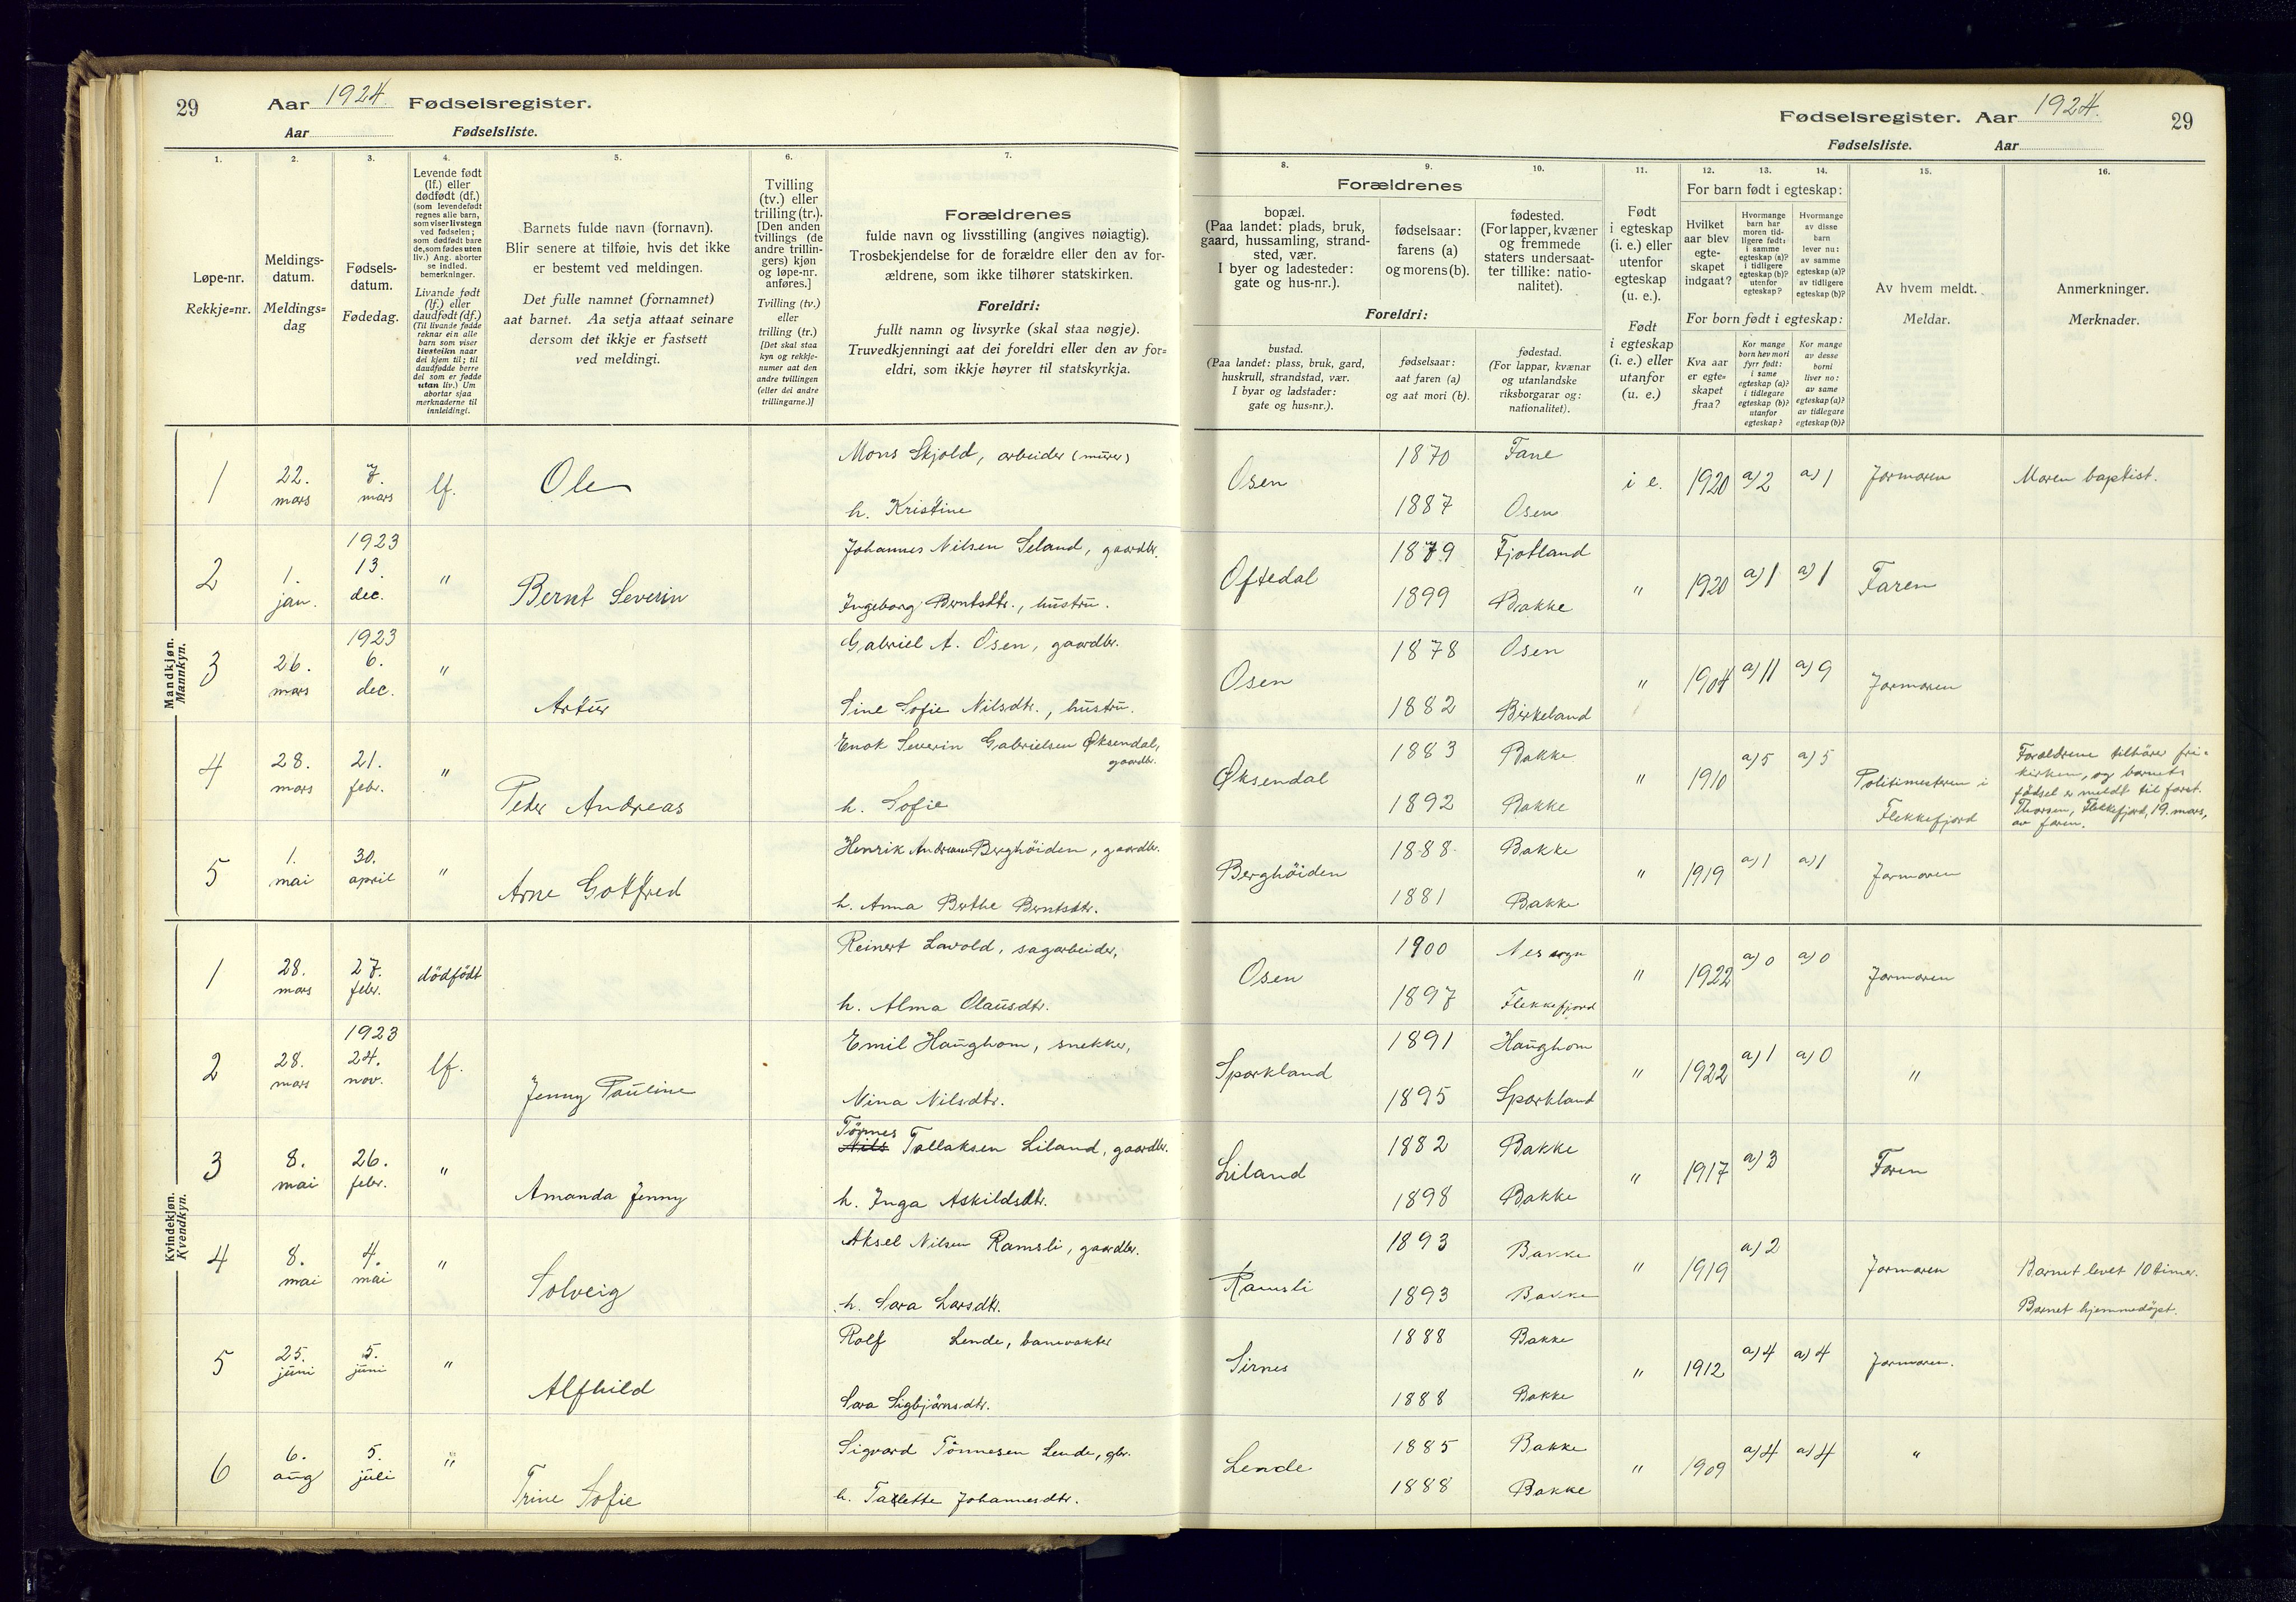 29 Aar 1924. Fødselsregister.
Aar Fødselsliste.
Fødselsregister. Aar 1924. 29
Fødselsliste. Aar
1.
Løpe-nr.
Rekkje=nr.
2.
Meldings-
datum.
Meldings=
dag
3.
Fødsels-
datum.
Fødedag.
4.
Levende født
(lf.) eller
dødfødt (df.)
(som levendefødt
regnes alle barn,
som viser livstegn
ved fødselen;
som dødfødt bare
de, som fødes uten
liv.) Ang. aborter
se indled.
bemerkninger.
Livande født
(lf.) eller
daudfødt (df.)
(Til livande fødde
reknar ein alle
barn som viser
livsteikn naar
dei kjem til; til
daudfødde berre
dei som er fødde
utan liv.) Um
abortar sjaa
merknaderne til
innleidingi.
5.
Barnets fulde navn (fornavn).
Blir senere at tilføie, hvis det ikke
er bestemt ved meldingen.
Det fulle namnet (fornamnet)
aat barnet. Aa setja attaat seinare
dersom det ikkje er fastsett
ved meldingi.
6.
Tvilling
(tv.) eller
trilling (tr.).
[Den anden
tvillings (de
andre trillin-
gers) kjøn
og løpe-nr.
anføres.]
Tvilling (tv.)
eller
trilling (tr.)
[Det skal staa
kyn og rekkje-
numer aat den
andre tvillingen
(eller dei andre
trillingarne.)]
7.
Forældrenes
fulde navn og livsstilling (angives nøiagtig).
Trosbekjendelse for de forældre eller den av for-
ældrene, som ikke tilhører statskirken.
Foreldri:
fullt namn og livsyrke (skal staa nøgje).
Truvedkjenningi aat dei foreldri eller den av for=
eldri, som ikkje høyrer til statskyrkja.
Forældrenes
8.
bopæl.
(Paa landet: plads, bruk,
gaard, hussamling, strand-
sted, vær.
I byer og ladesteder:
gate og hus-nr.).
9.
fødselsaar:
farens (a)
og morens (b).
10.
fødested.
(For lapper, kvæner
og fremmede
staters undersaat-
ter tillike: natio-
nalitet).
Foreldri:
bustad.
(Paa landet: plass, bruk, gard,
huskrull, strandstad, vær.
I byar og ladstader:
gate og hus=nr.).
fødselsaar:
aat faren (a)
og aat mori (b).
fødestad.
(For lappar, kvænar
og utanlandske
riksborgarar og:
nationalitet).
11.
Født
i egteskap
(i. e.) eller
utenfor
egteskap
(u. e.).
Født
i egteskap
(i. e.) eller
utanfor
(u. e.)
12. 13. 14.
For barn født i egteskap:
Hvilket
aar blev
egte-
skapet
indgaat?
Hvormange
barn har
moren tid-
ligere født:
i samme
egteskap (a)?
i tidligere
egteskap (b)?
utenfor
egteskap?
Hvormange
av disse
barn
lever nu:
av samme
egteskap (a)?
av tidligere
egteskap (b)?
For born født i egteskap:
Kva aar
er egte-
skapet
fraa?
Kor mange
born hev mori
fyrr født:
i same
egteskap (a)?
i tidlegare
egteskap (b)?
utanfor
egteskap?
Kor mange
av desse
borni
liver no:
av same
egteskap (a)?
av tidlegare
egteskap (b)?
15.
Av hvem meldt.
Meldar.
16.
Anmerkninger.
Merknader.
Mandkjøn.
Mannkyn.
1 22. mars 7. mars lf. Ole
Mons Skjold, arbeider (murer)
h. Kristine
Osen 1870 Fane
1887 Osen
i e. 1920 a) 2 a) 1 Jormoren Moren baptist.
2 1. jan. 1923 13. dec. " Bernt Severin
Johannes Nilsen Seland, gaardbr.
Ingeborg Berntsdtr., hustru.
Oftedal 1879 Fjotland
1899 Bakke
" 1920 a) 1 a) 1 Faren
3 26. mars 1923 6. dec. " Artur
Gabriel A. Osen, gaardbr.
Sine Sofie Nilsdtr., hustru.
Osen 1878 Osen
1882 Birkeland
" 1904 a) 11 a) 9 Jormoren
4 28. mars 21. febr. " Peder Andreas
Enok Severin Gabrielsen Øksendal,
gaardbr.
h. Sofie
Øksendal 1883 Bakke
1892 Bakke
" 1910 a) 5 a) 5 Politimesteren i
Flekkefjord
Forældrene tilhører fri-
kirken, og barnets
fødsel er meldt til forst.
Thorsen, Flekkefjord, 19. mars,
av faren.
5 1. mai 30. april " Arne Gotfred
Henrik Andreas Berghöiden, gaardbr.
h. Anna Berthe Berntsdtr.
Berghöiden 1888 Bakke
1881 Bakke
" 1919 a) 1 a) 1 Jormoren
Kvindekjøn.
Kvendkyn.
1 28. mars 27. febr. dödfödt
Reinert Lavold, sagarbeider,
h. Alma Olausdtr.
Osen 1900 Nes sogn
1897 Flekkefjord
" 1922 a) 0 a) 0 Jormoren
2 28. mars 1923 24. nov. lf. Jenny Pauline
Emil Haughom, snekker,
Nina Nilsdtr.
Sparkland 1891 Haughom
1895 Sparkland
" 1922 a) 1 a) 0 "
3 8. mai 26. febr. " Amanda Jenny
Tönnes
Nils Tallaksen Liland, gaardbr.
h. Inga Askildsdtr.
Liland 1882 Bakke
1898 Bakke
" 1917 a) 3 Faren
4 8. mai 4. mai " Solveig
Aksel Nilsen Ramsli, gaardbr.
h. Sara Larsdtr.
Ramsli 1893 Bakke
1893 Bakke
" 1919 a) 2 Jormoren Barnet levet 10 timer.
Barnet hjemmedöpt.
5 25. juni 5. juni " Alfhild
Rolf Lende, banevokter
Sara Sigbjörnsdtr.
Sirnes 1888 Bakke
1888 Bakke
" 1912 a) 4 a) 4 Jormoren.
6 6. aug 5. juli " Trine Sofie
Sigvard Tönnesen Lende, gbr.
h. Tallette Johannesdtr.
Lende 1885 Bakke
1888 Bakke
" 1909 a) 4 a) 4 "